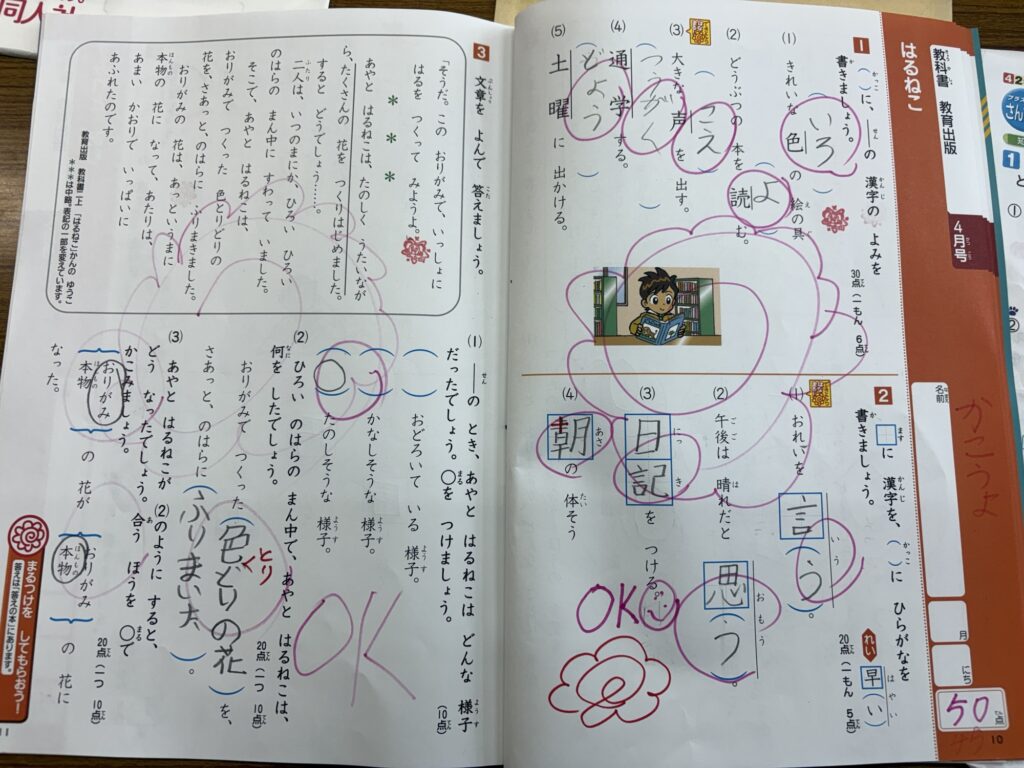 同人社
はるねこ
教科書 教育出版
4月号
名前
月
にち
50点
かこうよ
10
1 （ ）に、――の 漢字の よみを 書きましょう。
30点（一もん 6点）
(1) きれいな 色の 絵の具
いろ
(2) どうぶつの 本を 読む。
よ
(3) 大きな 声を 出す。
こえ
(4) 通学する。
つうがく
(5) 土曜に 出かける。
どよう
2 □に 漢字を、（ ）に ひらがなを 書きましょう。
20点（一もん 5点）
れい 早（い）
はやい
(1) おれいを 言（う）。
いう
(2) 午後は 晴れだと 思（う）。
おもう
(3) 日記を つける。
にっき
(4) 朝の 体そう
あさ
OK
3 文章を よんで 答えましょう。
「そうだ。この おりがみで、いっしょに
はるを つくって みようよ。」
＊ ＊ ＊
あやと はるねこは、たのしく うたいなが
ら、たくさんの 花を つくりはじめました。
すると どうでしょう……。
二人は、いつのまにか、ひろい ひろい
のはらの まん中に すわって いました。
そこで、あやと はるねこは、
おりがみで つくった 色とりどりの
花を、さあっと、のはらに ふりまきました。
おりがみの 花は、あっというまに
本物の 花に なって、あたりは、
あまい かおりで いっぱいに
あふれたのです。
教育出版 教科書二上 「はるねこ」かんの ゆうこ
＊＊＊は中略。表記の一部を変えています。
(1) ――の とき、あやと はるねこは どんな 様子
だったでしょう。○を つけましょう。
（10点）
（ ）おどろいて いる 様子。
（ ）かなしそうな 様子。
（○）たのしそうな 様子。
(2) ひろい のはらの まん中で、あやと はるねこは、
何を したでしょう。
20点（一つ 10点）
おりがみで つくった（色どりの花）を、
とり
さあっと、のはらに（ふりまいた）。
OK
(3) あやと はるねこが (2)のように すると、
どう なったでしょう。合う ほうを ○で
かこみましょう。
20点（一つ 10点）
おりがみ
本物
の 花が
おりがみ
本物
の 花に
なった。
まるつけを してもらおう！
答えは「答えの本」にあります。
11